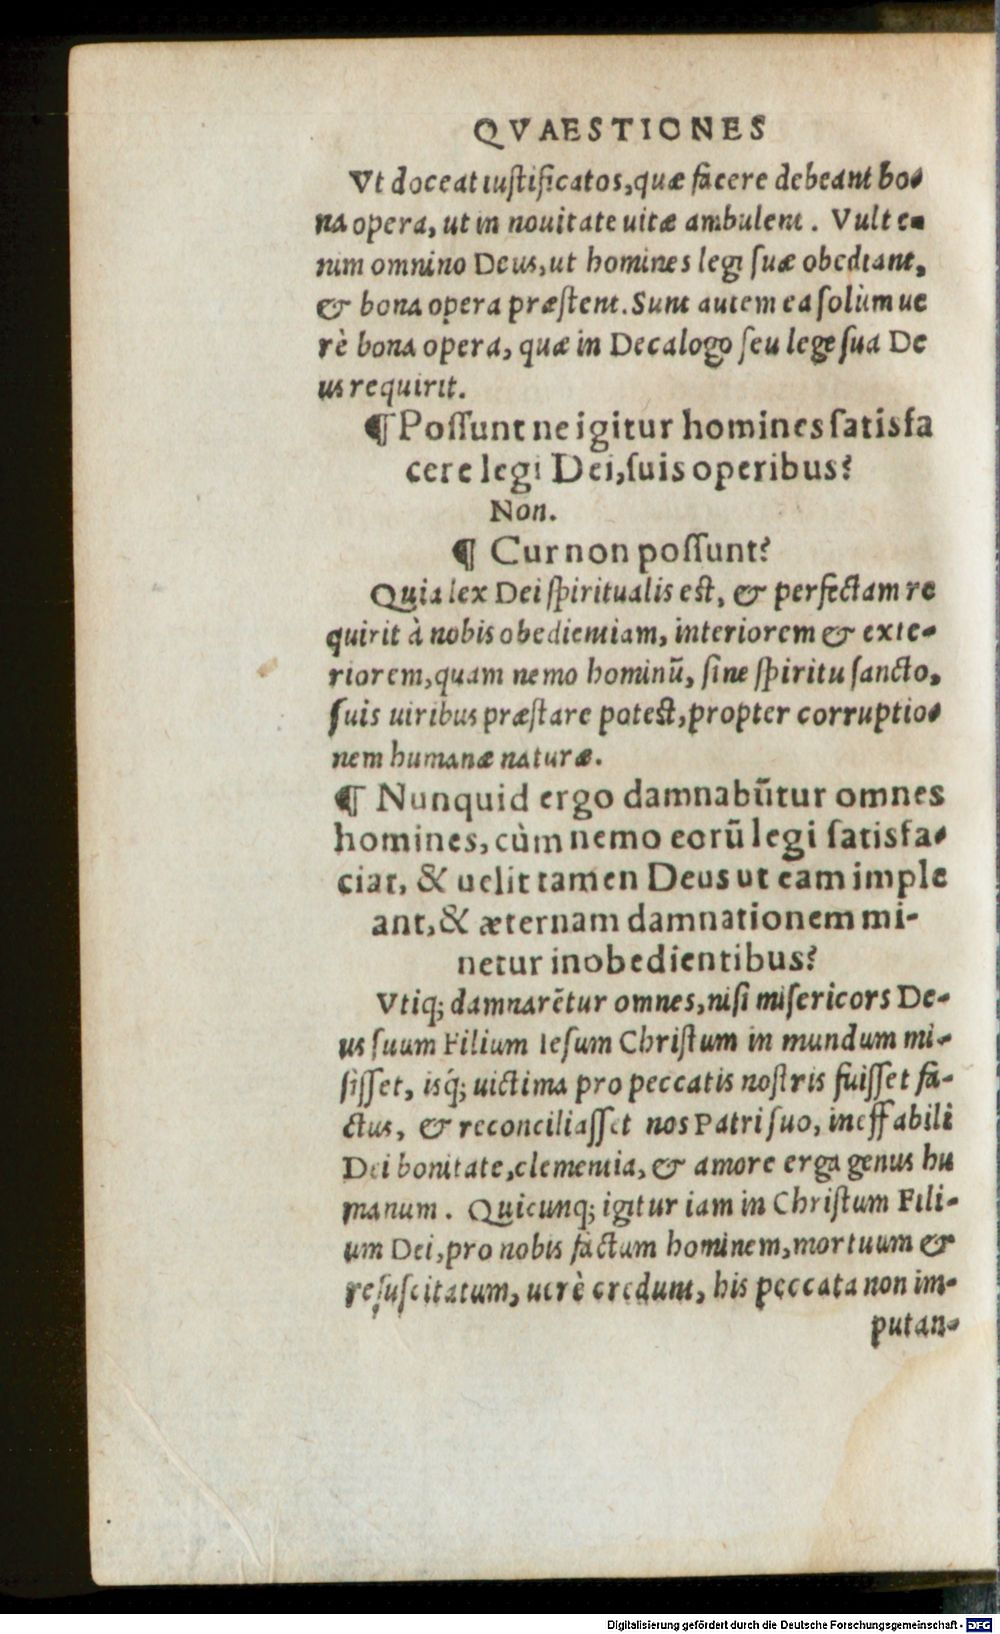 QVAESTIONES
Vt doceat iustificatos, quæ facere debeant bo-
na opera, ut in nouitate uitæ ambulent. Vult e-
nim omnino Deus, ut homines legi suæ obediant,
& bona opera præstent. Sunt autem ea solùm ue
rè bona opera, quæ in Decalogo seu lege sua De
us requirit.
¶ Possunt ne igitur homines satisfa
cere legi Dei, suis operibus?
Non.
¶ Cur non possunt?
Quia lex Dei spiritualis est, & perfectam re
quirit à nobis obedientiam, interiorem & exte-
riorem, quam nemo hominũ, sine spiritu sancto,
suis uiribus præstare potest, propter corruptio-
nem humanæ naturæ.
¶ Nunquid ergo damnabũtur omnes
homines, cùm nemo eorũ legi satisfa-
ciat, & uelit tamen Deus ut eam imple
ant, & æternam damnationem mi-
netur inobedientibus?
Vtiq; damnarẽtur omnes, nisi misericors De-
us suum Filium Iesum Christum in mundum mi-
sisset, isq́; uictima pro peccatis nostris fuisset fa-
ctus, & reconciliasset nos Patri suo, ineffabili
Dei bonitate, clementia, & amore erga genus hu
manum. Quicunq; igitur iam in Christum Fili-
um Dei, pro nobis factum hominem, mortuum &
resuscitatum, uerè credunt, his peccata non im-
putan-
Digitalisierung gefördert durch die Deutsche Forschungsgemeinschaft - DFG